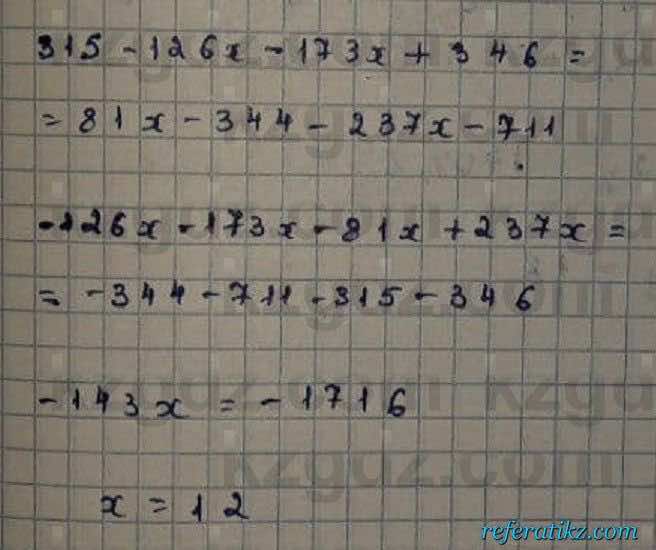 315 - 126x - 173x + 346 =
= 81x - 344 - 237x - 711
-126x - 173x - 81x + 237x =
= -344 - 711 - 315 - 346
-143x = -1716
x = 12
kzgdz.com
referatikz.com